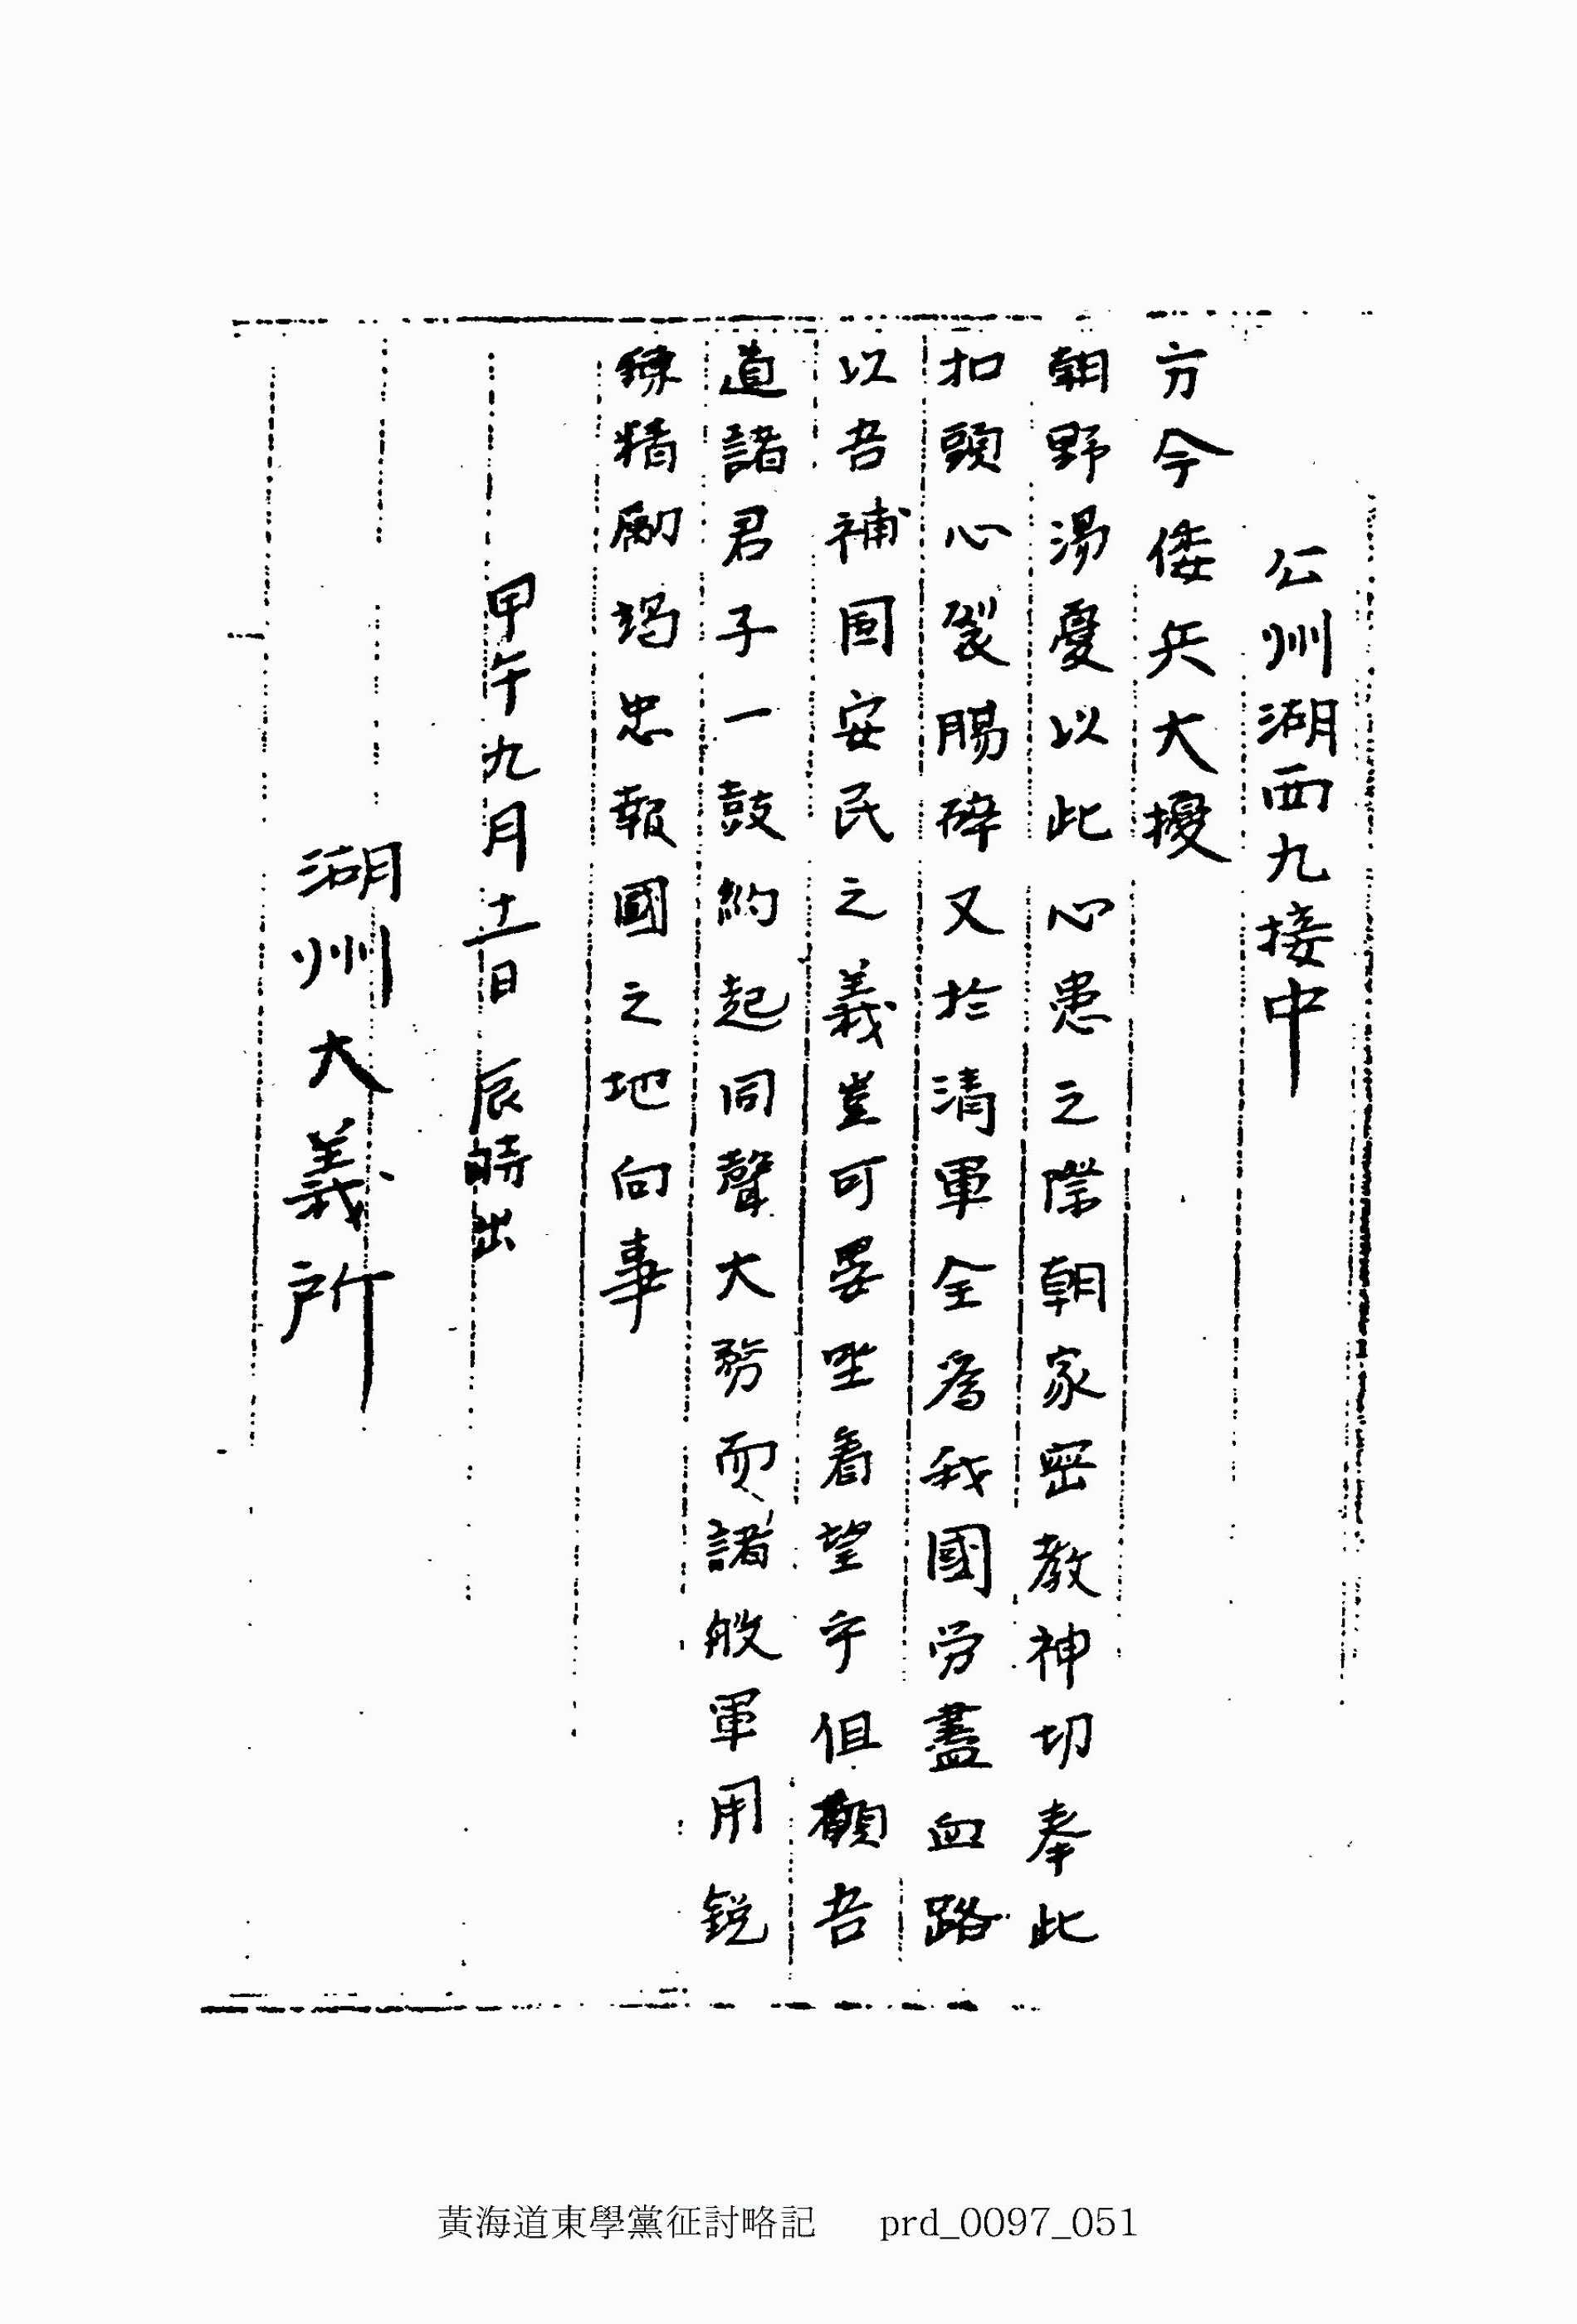 公州湖西九接中
方今倭兵大擾
朝野湯憂以此心患之際朝家密教神切奉此
扣頭心裂賜碎又於清軍全為我國労盡血路
以吾補國安民之義豈可晏坐着望乎但願吾
道諸君子一鼓約起同聲大務而諸般軍用銳
鍊精勵竭忠報國之地向事
甲午九月十一日 辰時出
湖州大義所
黃海道東學黨征討略記 prd_0097_051